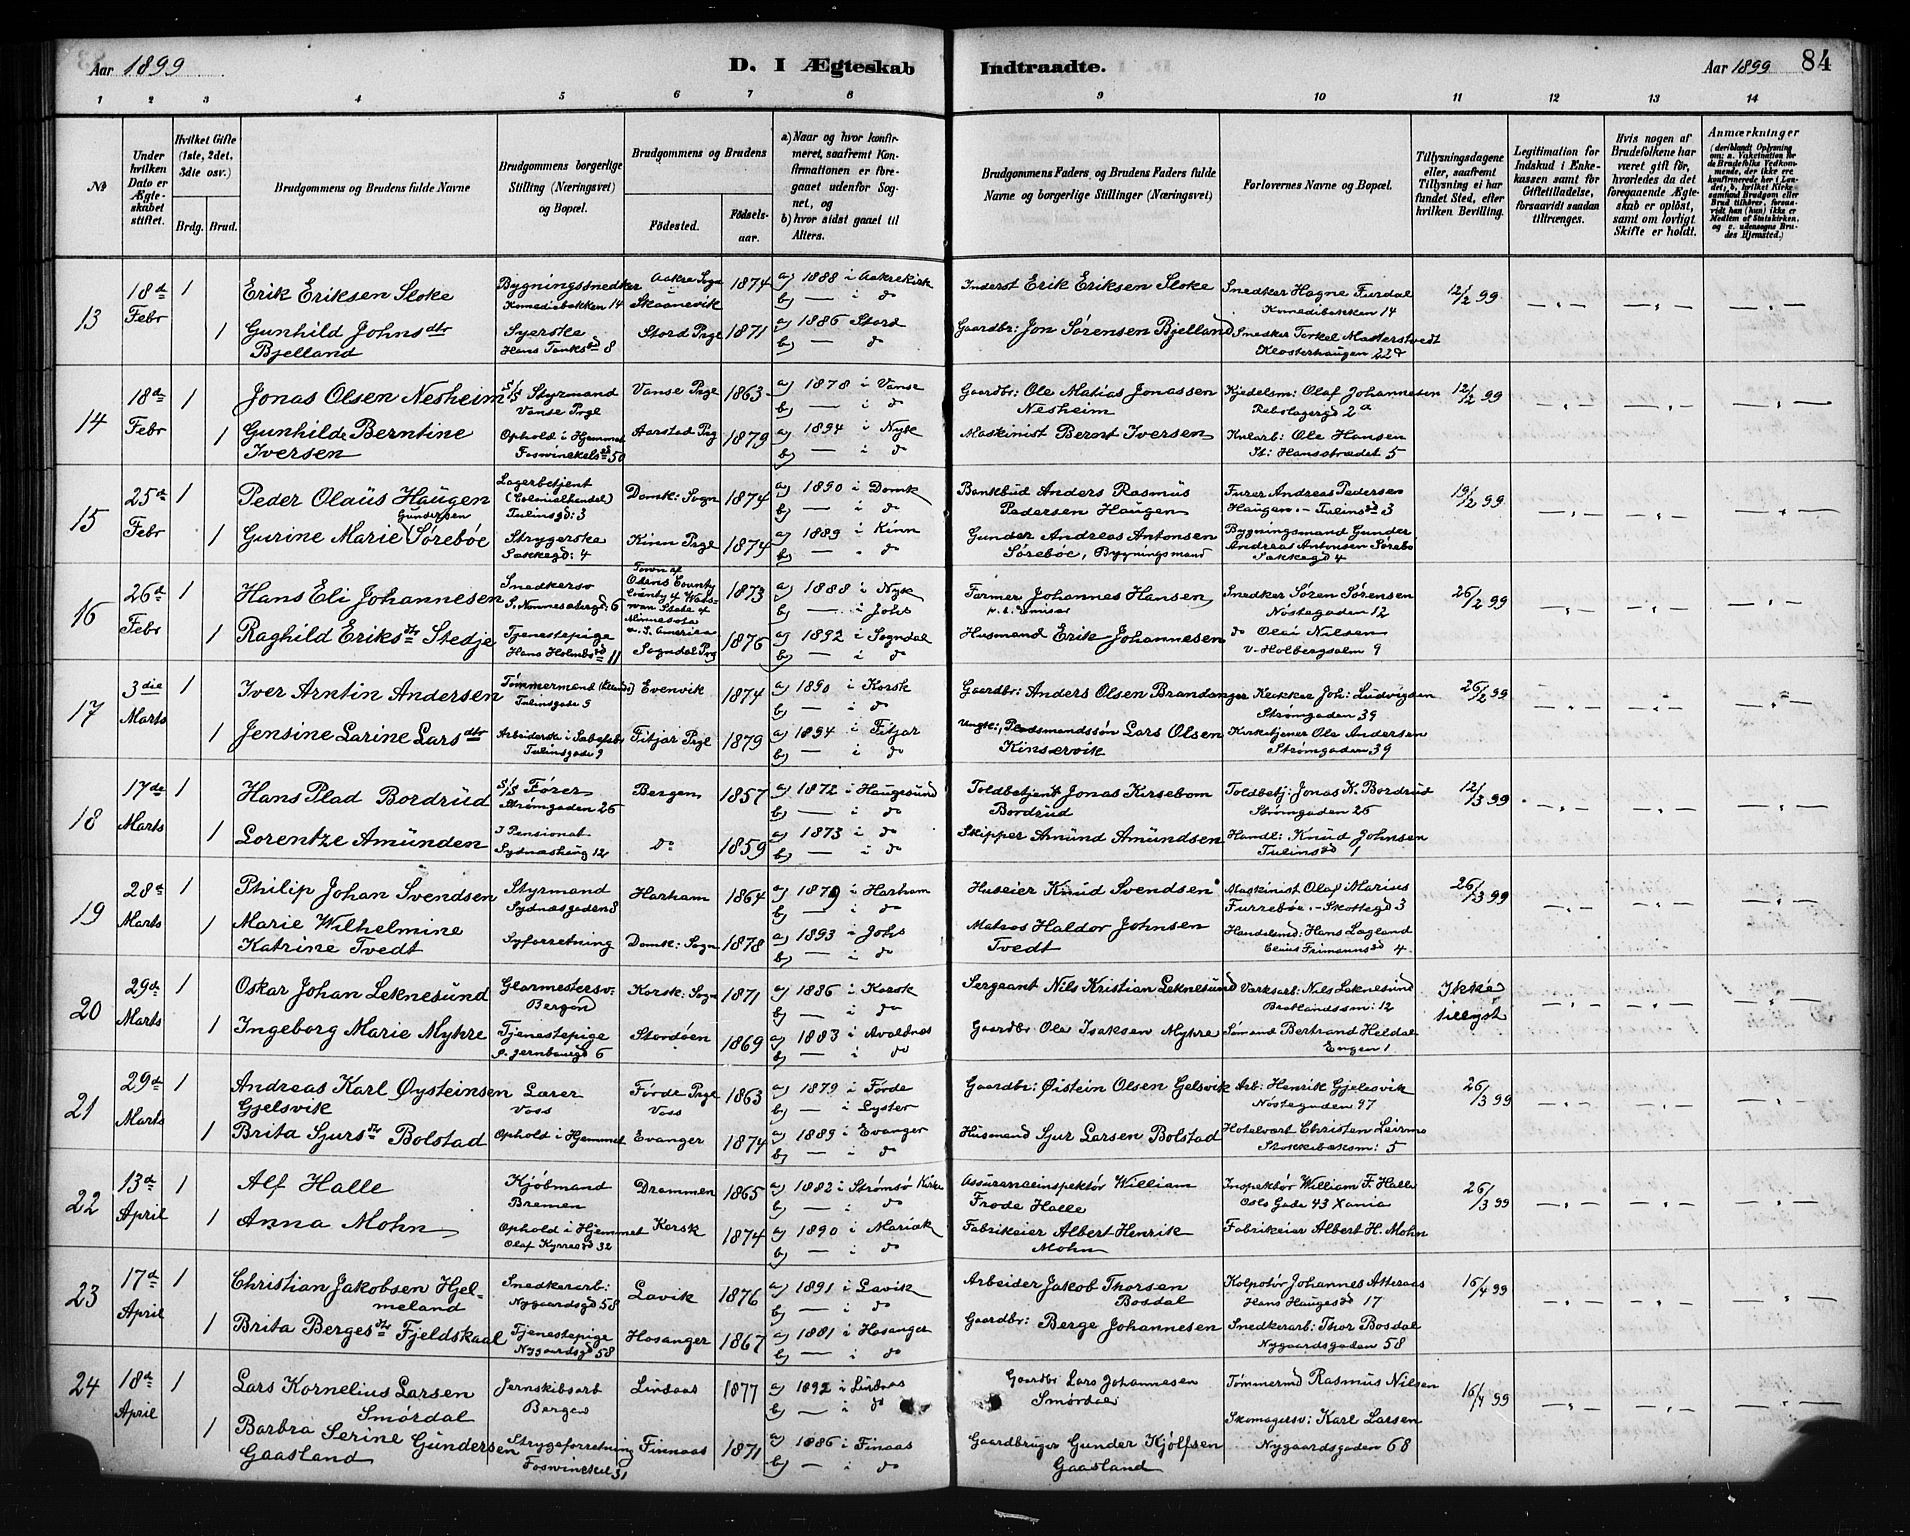 Aar 1899
D. I Ægteskab
Indtraadte.
Aar 1899
84
1 2 3 4 5 6 7 8 9 10 11 12 13 14
No
Under hvilken Dato er Ægteskabet stiftet.
Hvilket Gifte (1ste, 2det, 3die osv.)
Brdg. Brud.
Brudgommens og Brudens fulde Navne
Brudgommens borgerlige Stilling (Næringsvei) og Bopæl.
Brudgommens og Brudens
Fødested.
Fødsels-aar.
a) Naar og hvor konfirmeret, saafremt Konfirmationen er foregaaet udenfor Sognet, og
b) hvor sidst gaaet til Alters.
Brudgommens Faders og Brudens Faders fulde Navne og borgerlige Stillinger (Næringsvei)
Forlovernes Navne og Bopæl.
Tillysningsdagene eller, saafremt Tillysning ei har fundet Sted, efter hvilken Bevilling.
Legitimation for Indskud i Enkekassen samt for Giftetilladelse, forsaavidt saadan tiltrænges.
Hvis nogen af Brudefolkene har været gift før, hvorledes da det foregaaende Ægteskab er opløst, samt om lovligt Skifte er holdt.
Anmærkninger
13 18de Febr 1 Erik Eriksen Sloke Bygningssnedker Komediebakken 14 Aakre Sogn i Skaanevik 1874 a) 1888 i Aakrekirk b) — i do Inderst Erik Eriksen Sloke Snedker Hogne Furdal Komedibakken 14 12/2 99
1 Gunhild Johnsdtr Bjelland Syerske Hans Tanksgd 8 Stord Prgl 1871 a) 1886 Stord b) — do Gaardbr: Jon Sørensen Bjelland Snedker Torkel Matterstvedt Klosterhaugen 22d
14 18de Febr 1 Jonas Olsen Nesheim S/S Styrmand Vanse Prgl Vanse Prgl 1863 a) 1878 i Vanse b) — i do Gaardbr: Ole Matias Jonassen Nesheim Kjedelsm: Olaf Johannesen Rebslagergd 2a 12/2 99
1 Gunhilde Berntine Iversen Ophold i Hjemmet Foswinckelsgd 50 Aarstad Prg 1879 a) 1894 i Nyk b) — i do Maskinist Bernt Iversen Kularb: Ole Hansen St: Hansstrædet 5
15 25de Febr 1 Peder Olaüs Haugen Lagerbetjent (Colonialhandel) Tulinsgd: 3 Domk: Sogn 1874 a) 1890 i Domk b) — i do Bankbud Anders Rasmus Pedersen Haugen Furer Andreas Pedersen Haugen.- Tulinsgd 3 19/2 99
1 Gurine Marie Gundersen Sørebøe Strygerske Sækkegd: 4 Kinn Prgl 1874 a) 1889 i Kinn b) — do Gunder Andreas Antonsen Sørebøe, Bygningsmand Bygningsmand Gunder Andreas Antonsen Sørebø Sækkegd 4
16 26de Febr 1 Hans Eli Johannesen Snedkersv 6 1873 a) 1888 i Nyk b) — i Johs Farmer Johannes Hansen Snedker Sören Sörensen Nöstegaden 12 26/2 99
1 Raghild Eriksdtr Stedje Tjenestepige Hans Holmbsgd 11 Sogndal Prg 1876 a) 1892 i Sogndal b) — i do Husmand Erik Johannesen do Olai Nilsen V-Holbergsalm 9
17 3die Marts 1 Iver Arntin Andersen Tömmermand Tulinsgade 9 Evenvik 1874 a) 1890 i Korsk b) — i do Gaardbr: Anders Olsen Brandanger Klokker Joh: Ludvigsen Strømgaden 39 26/2 99
1 Jensine Larine Larsdtr Tulinsgade 9 Fitjar Prgl 1879 a) 1894 i Fitjar b) — i do Lars Olsen Kinservik Kirketjener Ole Andersen Strømgaden 39
18 17de Marts 1 Hans Plad Bordrüd S/S Fører Strømgaden 26 Bergen 1857 a) 1872 i Haugesund b) — i do Toldbetjent Jonas Kirsebom Bordrüd Toldbetj: Jonas K. Bordrud Strömgaden 26 12/3 99
1 Lorentze Amünden I Pensionat Sydnæshaug 12 do 1859 a) 1873 i do b) — i do Skipper Amünd Amündsen Handl: Knüd Johnsen Tulinsgd 1
19 28de Marts 1 Philip Johan Svendsen Styrmand Sydnæsgaden 8 Harham 1864 a) 1879 i Harham b) — i do Huseier Knud Svendsen Maskinist Olaf Marius Furrebøe.- Skottegd 3 26/3 99
1 Marie Wilhelmine Katrine Tvedt Syforretning Domk: Sogn 1878 a) 1893 i Johs b) — i do Matros Haldor Johnsen Tvedt Handelsmd: Hans Lagland Claus Frimannsgd 4
20 29de Marts 1 Oskar Johan Leknesünd Glarmestersv. Bergen Korsk: Sogn 1871 a) 1886 i Korsk b) — i do Sergeant Nils Kristian Leknesund Værksarb: Nils Leknesund 12 Ikke tillyst
1 Ingeborg Marie Myhre Tjenestepige 6 Stordöen 1869 a) 1883 i Avaldsnes b) — i do Gaardbr Ole Isaksen Myhre Sømand Bertrand Heldal Engen 1
21 29de Marts 1 Andreas Karl Øysteinsen Gjelsvik Lærer Voss Förde Prgl Voss 1863 a) 1879 i Førde b) — i Lyster Gaardbr: Øistein Olsen Gjelsvik Arb: Henrik Gjelsvik Nöstegaden 97 26/3 99
1 Brita Sjursdtr Bolstad Ophold i Hjemmet Evanger 1874 a) 1889 i Evanger b) — i do Husmand Sjur Larsen Bolstad Hotelvært Christen Leirmo 5
22 13de April 1 Alf Halle Kjöbmand Bremen Drammen 1865 a) 1882 i Strømsø Kirke b) — i do Assuranceinspektør William Frode Halle Inspektør William F. Halle Oslo Gade 43 Xania 26/3 99
1 Anna Mohn Ophold i Hjemmet Olaf Kyrresgd 32 Korsk 1874 a) 1890 i Mariæk b) — i do Fabrikeier Albert Henrik Mohn Fabrikeier Albert H. Mohn
23 17de April 1 Christian Jakobsen Hjelmeland Snedkerarb: Nygaardsgd 58 Lavik 1876 a) 1891 i Lavik b) — i do Arbeider Jakob Thorsen Bosdal Kolpotör Johannes Atteraas Hans Haugesgd 17 16/4 99
1 Brita Bergesdtr Fjeldskaal Tjenestepige Nygaardsgd 58 Hosanger 1867 a) 1881 i Hosanger b) — i do Gaardbr: Berge Johannesen Snedkerarb: Thor Bosdal Nygaardsgaden 58
24 18de April 1 Lars Kornelius Larsen Smørdal Jernskibsarb Bergen Lindaas 1877 a) 1892 i Lindaas b) — i do Gaardbr Lars Johannesen Smørdal Tømmermd Rasmus Nilsen 16/4 99
1 Barbra Serine Gündersen Gaasland Strygeforretning Foswinckel 31 Finnaas 1871 a) 1886 i Finaas b) — i do Gaardbruger Gunder Kjølfsen Gaasland Skomagersv: Karl Larsen Nygaardsgaden 68